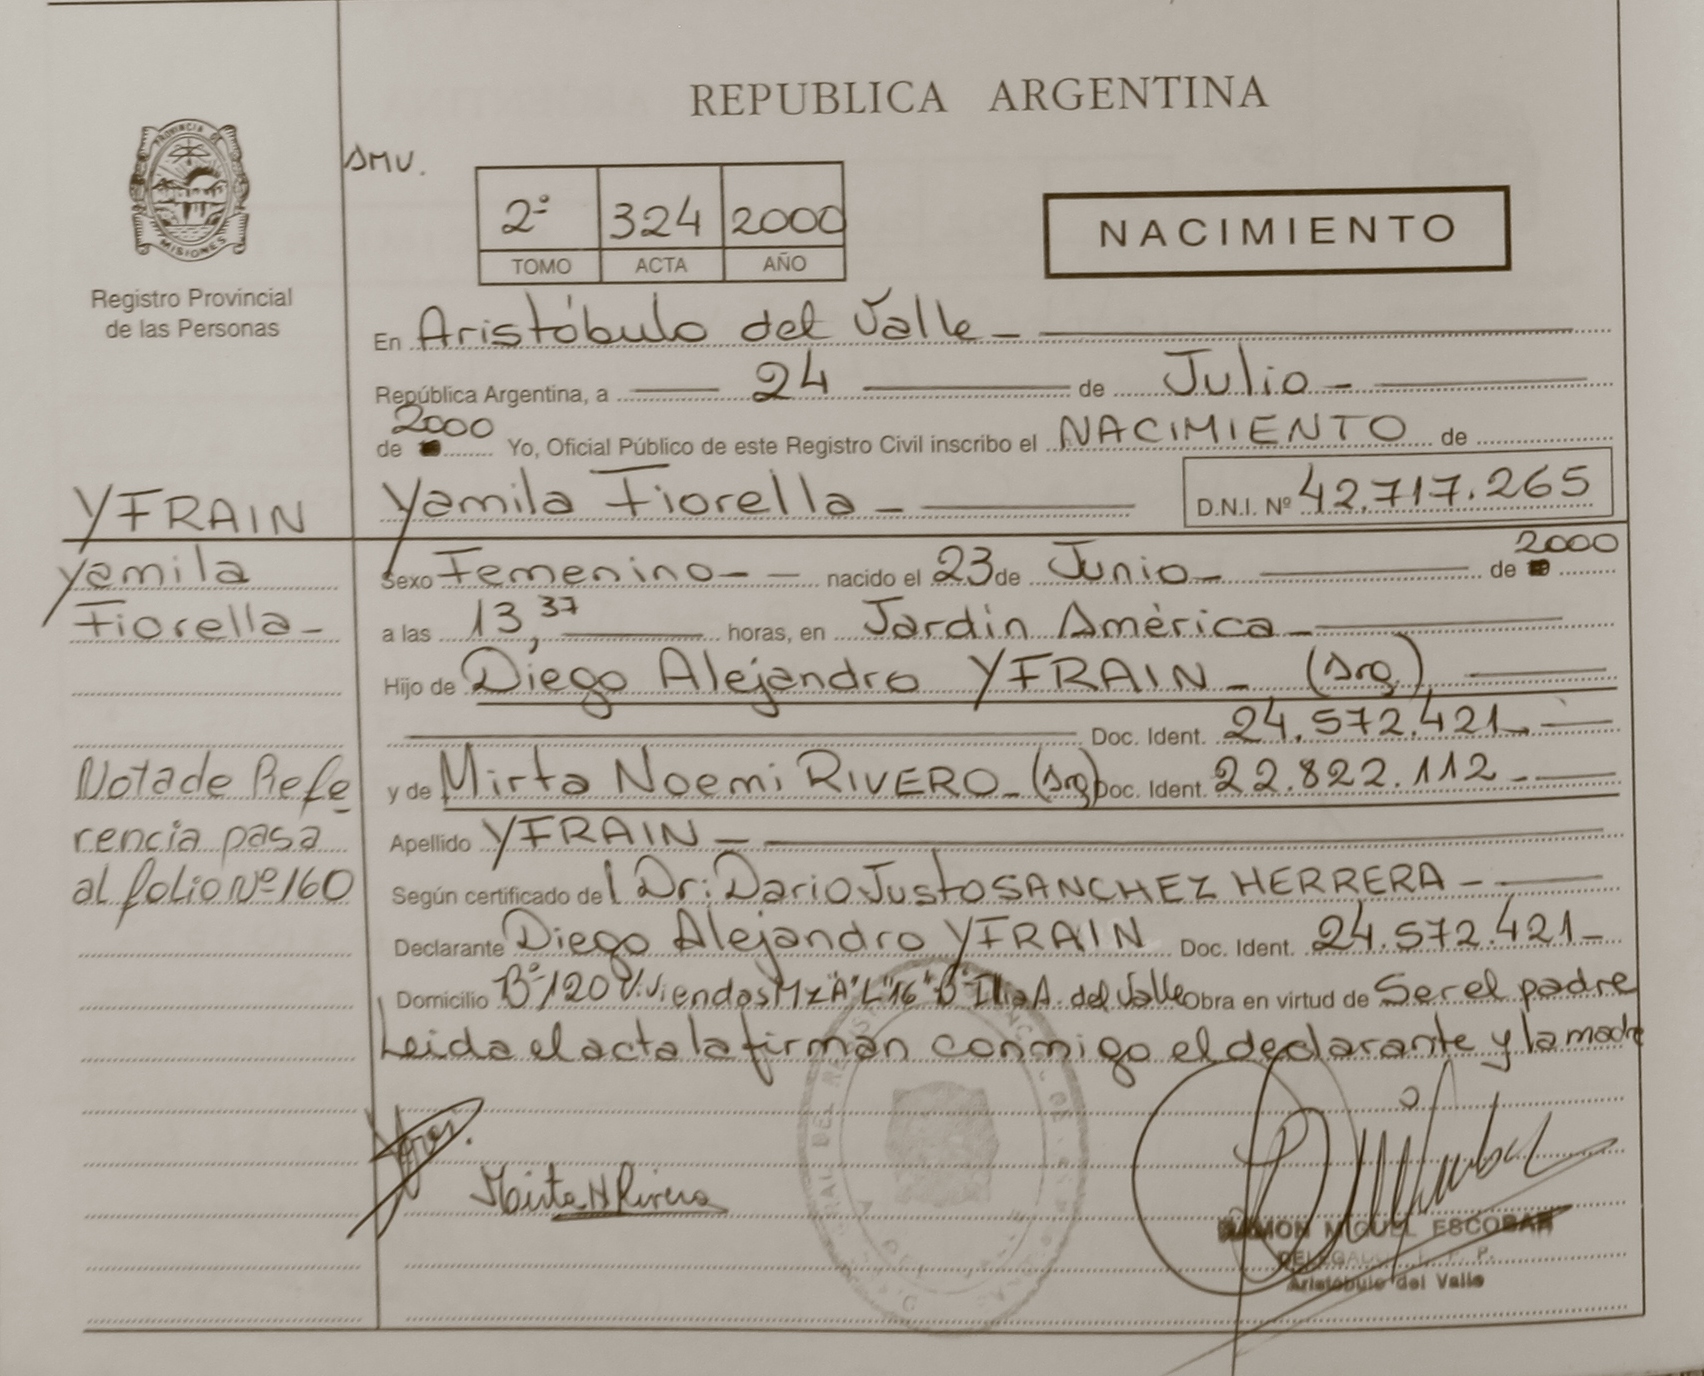 REPUBLICA ARGENTINA
PROVINCIA DE
MISIONES
Registro Provincial
de las Personas
SMV.
2º 324 2000
TOMO ACTA AÑO
NACIMIENTO
En Aristóbulo del Valle
República Argentina, a 24 de Julio
de 2000 Yo, Oficial Público de este Registro Civil inscribo el NACIMIENTO de
Yamila Fiorella D.N.I. Nº 42.717.265
YFRAIN
Yamila
Fiorella
Sexo Femenino nacido el 23 de Junio de 2000
a las 13,37 horas, en Jardin América
Hijo de Diego Alejandro YFRAIN (Arg)
Doc. Ident. 24.572.421
y de Mirta Noemi RIVERO (Arg) Doc. Ident. 22.822.112
Apellido YFRAIN
Nota de Refe-
rencia pasa
al folio Nº 160
Según certificado del Dr: Dario Justo SANCHEZ HERRERA
Declarante Diego Alejandro YFRAIN Doc. Ident. 24.572.421
Domicilio Bº 120 Viviendas Mz "A" L "16" Bº Illia A. del Valle Obra en virtud de Ser el padre
Leida el acta la firman conmigo el declarante y la madre
Mirta N Rivero
RAMON MIGUEL ESCOBAR
Aristóbulo del Valle